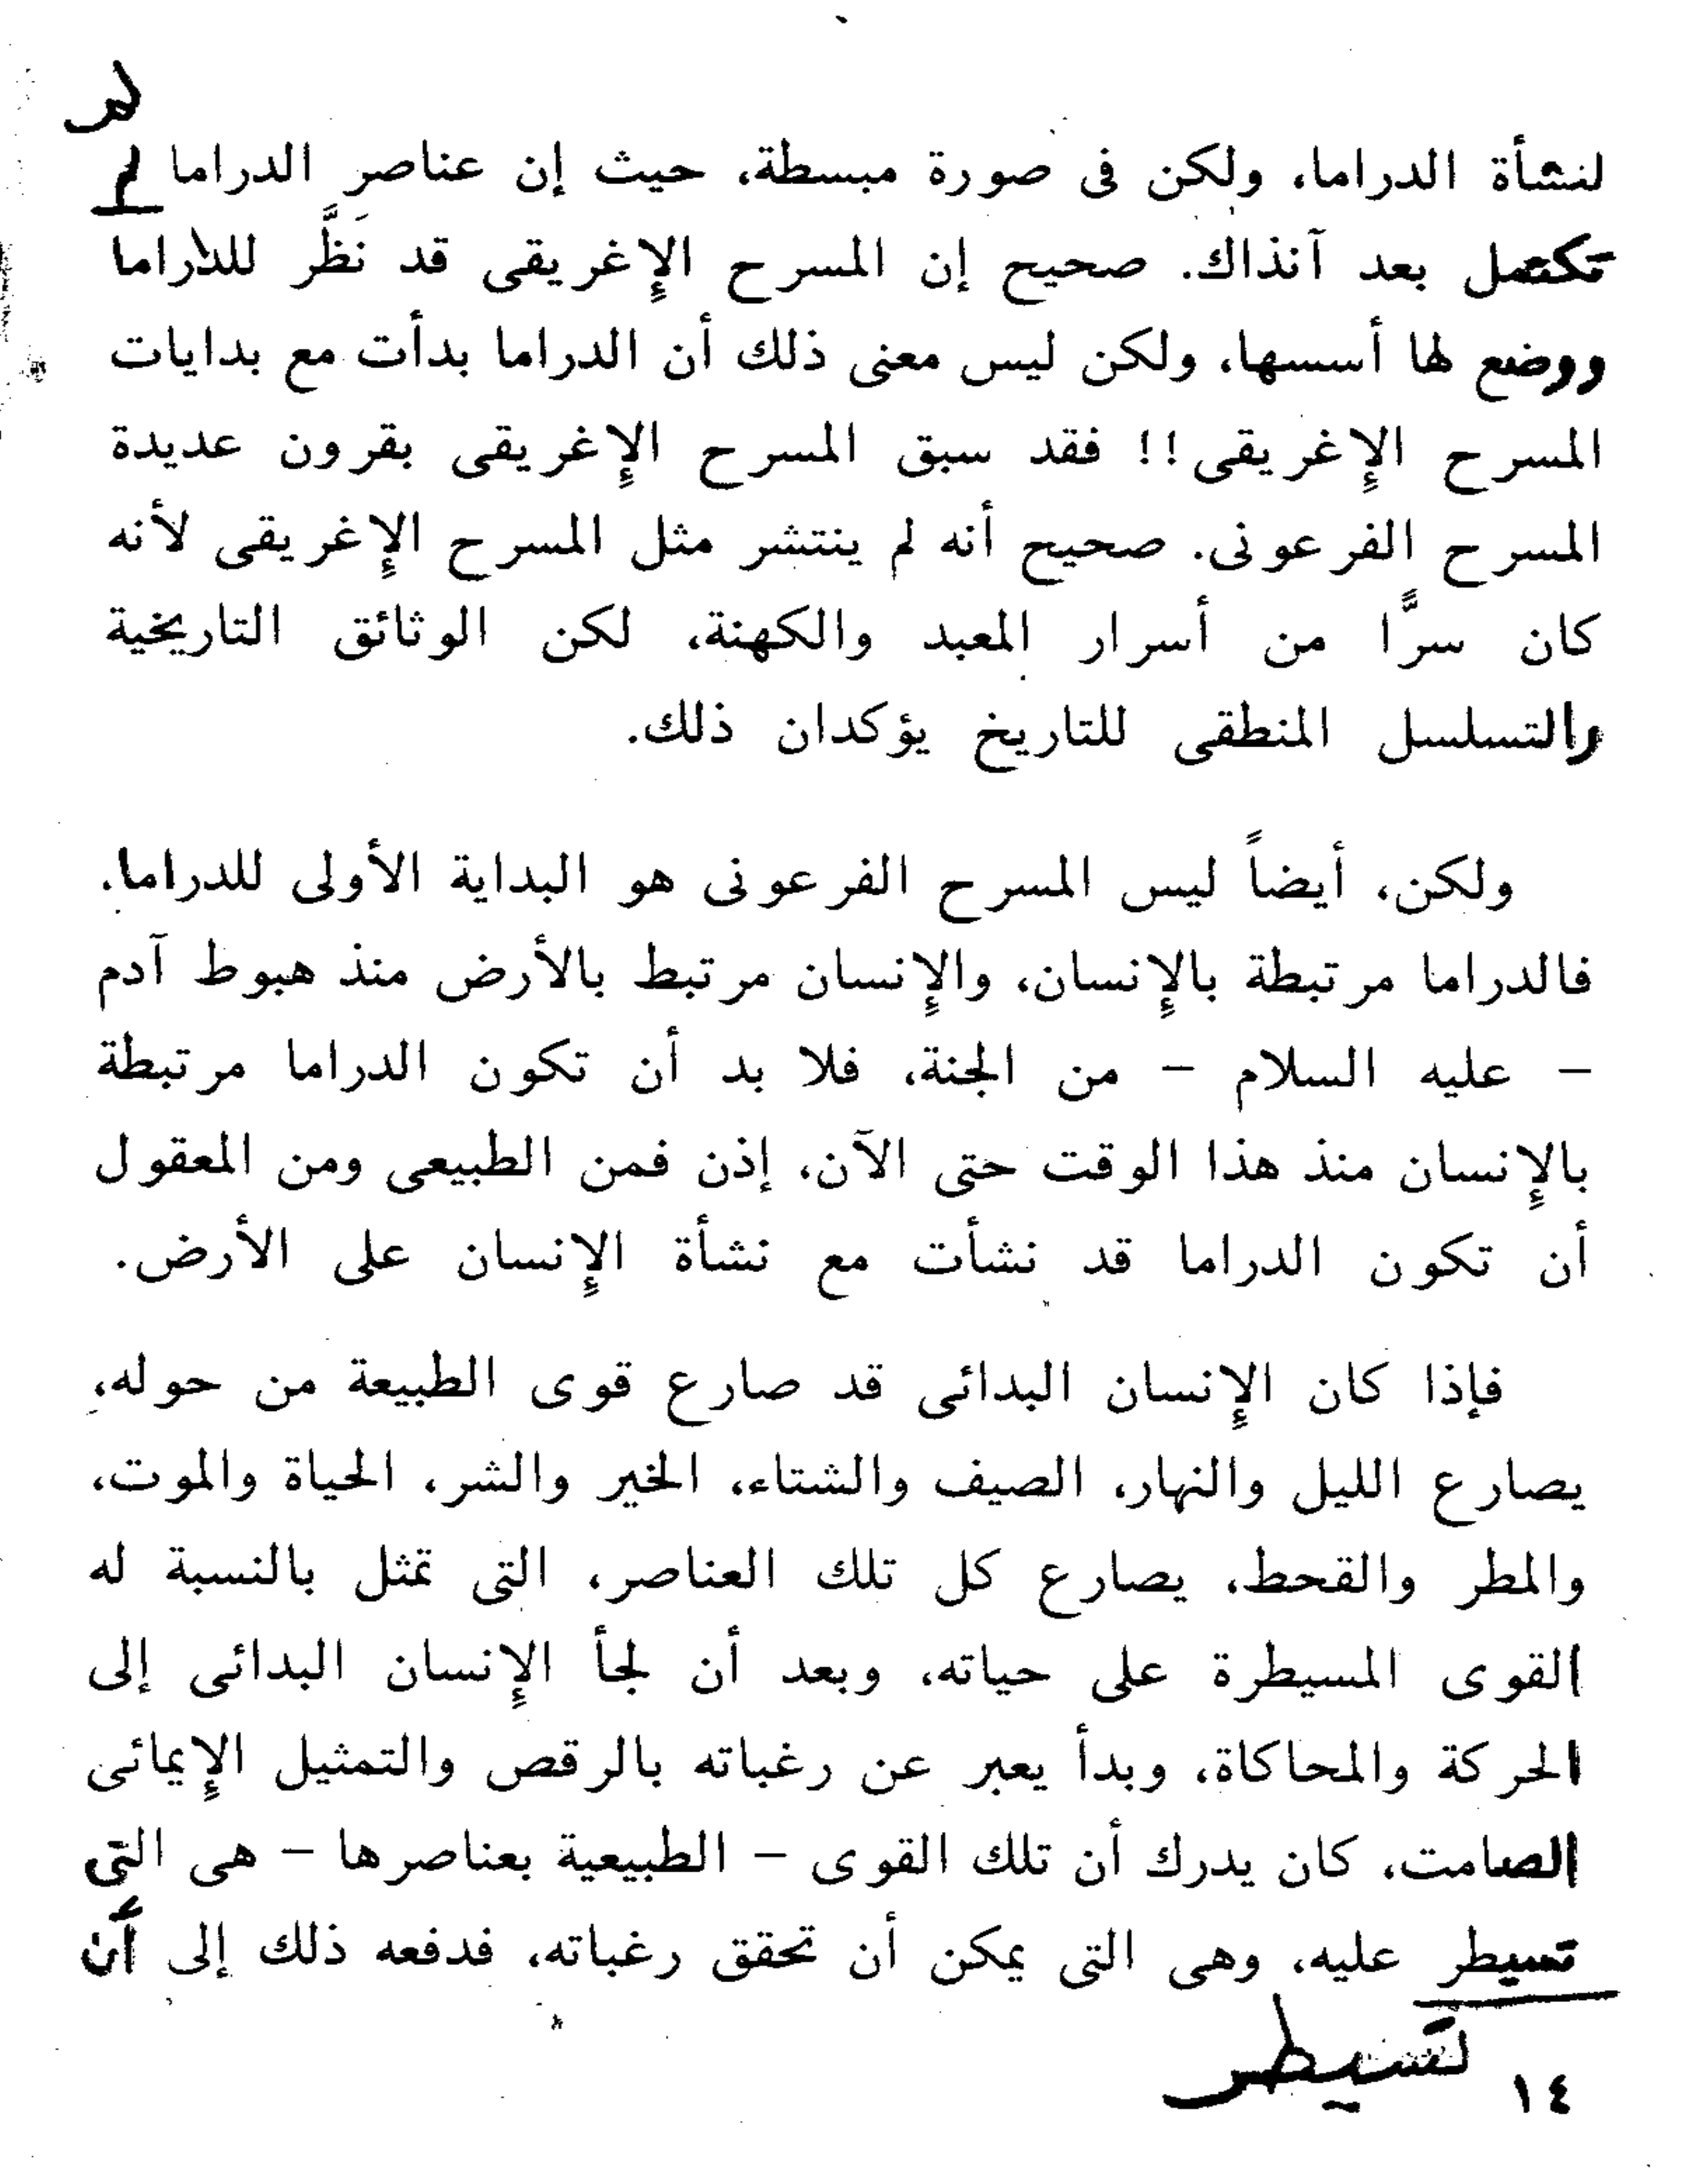 لم
لنشأة الدراما، ولكن فى صورة مبسطة، حيث إن عناصر الدراما لم
تكتمل بعد آنذاك. صحيح إن المسرح الإغريقى قد نَظَّر للدراما
ووضع لها أسسها، ولكن ليس معنى ذلك أن الدراما بدأت مع بدايات
المسرح الإغريقى!! فقد سبق المسرح الإغريقى بقرون عديدة
المسرح الفرعونى. صحيح أنه لم ينتشر مثل المسرح الإغريقى لأنه
كان سرًّا من أسرار المعبد والكهنة، لكن الوثائق التاريخية
والتسلسل المنطقى للتاريخ يؤكدان ذلك.
ولكن، أيضاً ليس المسرح الفرعونى هو البداية الأولى للدراما.
فالدراما مرتبطة بالإنسان، والإنسان مرتبط بالأرض منذ هبوط آدم
– عليه السلام – من الجنة، فلا بد أن تكون الدراما مرتبطة
بالإنسان منذ هذا الوقت حتى الآن، إذن فمن الطبيعى ومن المعقول
أن تكون الدراما قد نشأت مع نشأة الإنسان على الأرض.
فإذا كان الإنسان البدائى قد صارع قوى الطبيعة من حوله،
يصارع الليل والنهار، الصيف والشتاء، الخير والشر، الحياة والموت،
والمطر والقحط، يصارع كل تلك العناصر، التى تمثل بالنسبة له
القوى المسيطرة على حياته، وبعد أن لجأ الإنسان البدائى إلى
الحركة والمحاكاة، وبدأ يعبر عن رغباته بالرقص والتمثيل الإيمائى
الصامت، كان يدرك أن تلك القوى – الطبيعية بعناصرها – هى التى
تسيطر عليه، وهى التى يمكن أن تحقق رغباته، فدفعه ذلك إلى أن
تسيطر
١٤